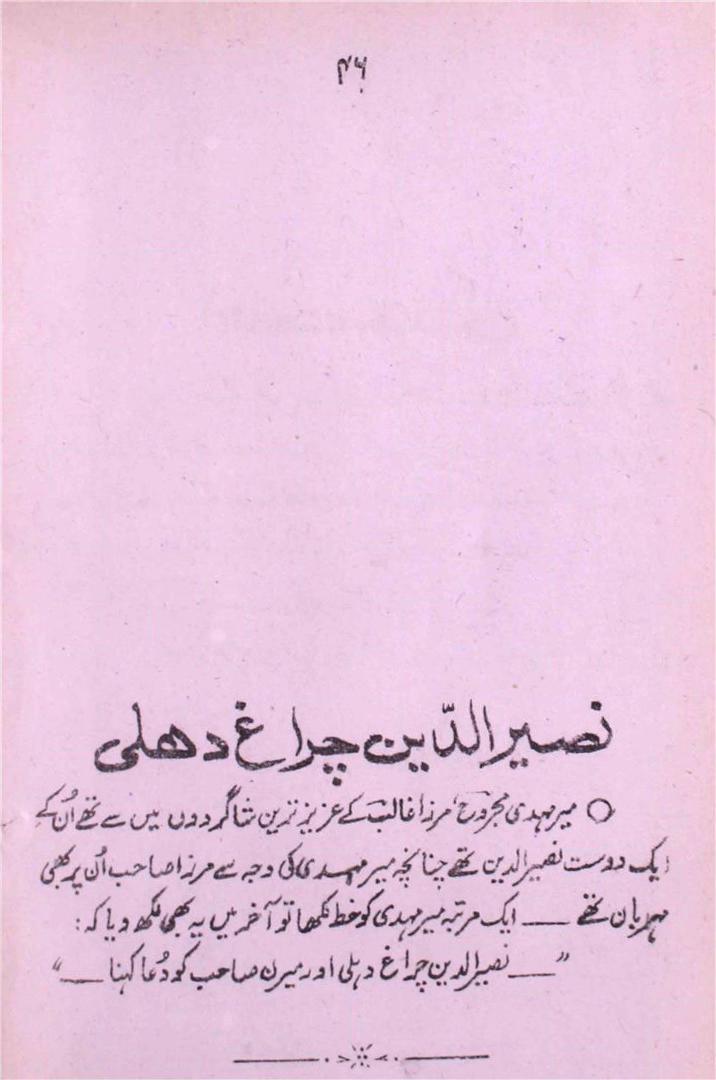 ۴۶
نصیر الدّین چراغ دھلی
○ میر مہدی مجروح مرزا غالب کے عزیز ترین شاگردوں میں سے تھے اُن کے
ایک دوست نصیر الدین تھے چنانچہ میر مہدی کی وجہ سے مرزا صاحب اُن پر بھی
مہربان تھے ــــ ایک مرتبہ میر مہدی کو خط لکھا تو آخر میں یہ بھی لکھ دیا کہ:
”ــــ نصیر الدین چراغ دہلی اور میرن صاحب کو دُعا کہنا ــــ“